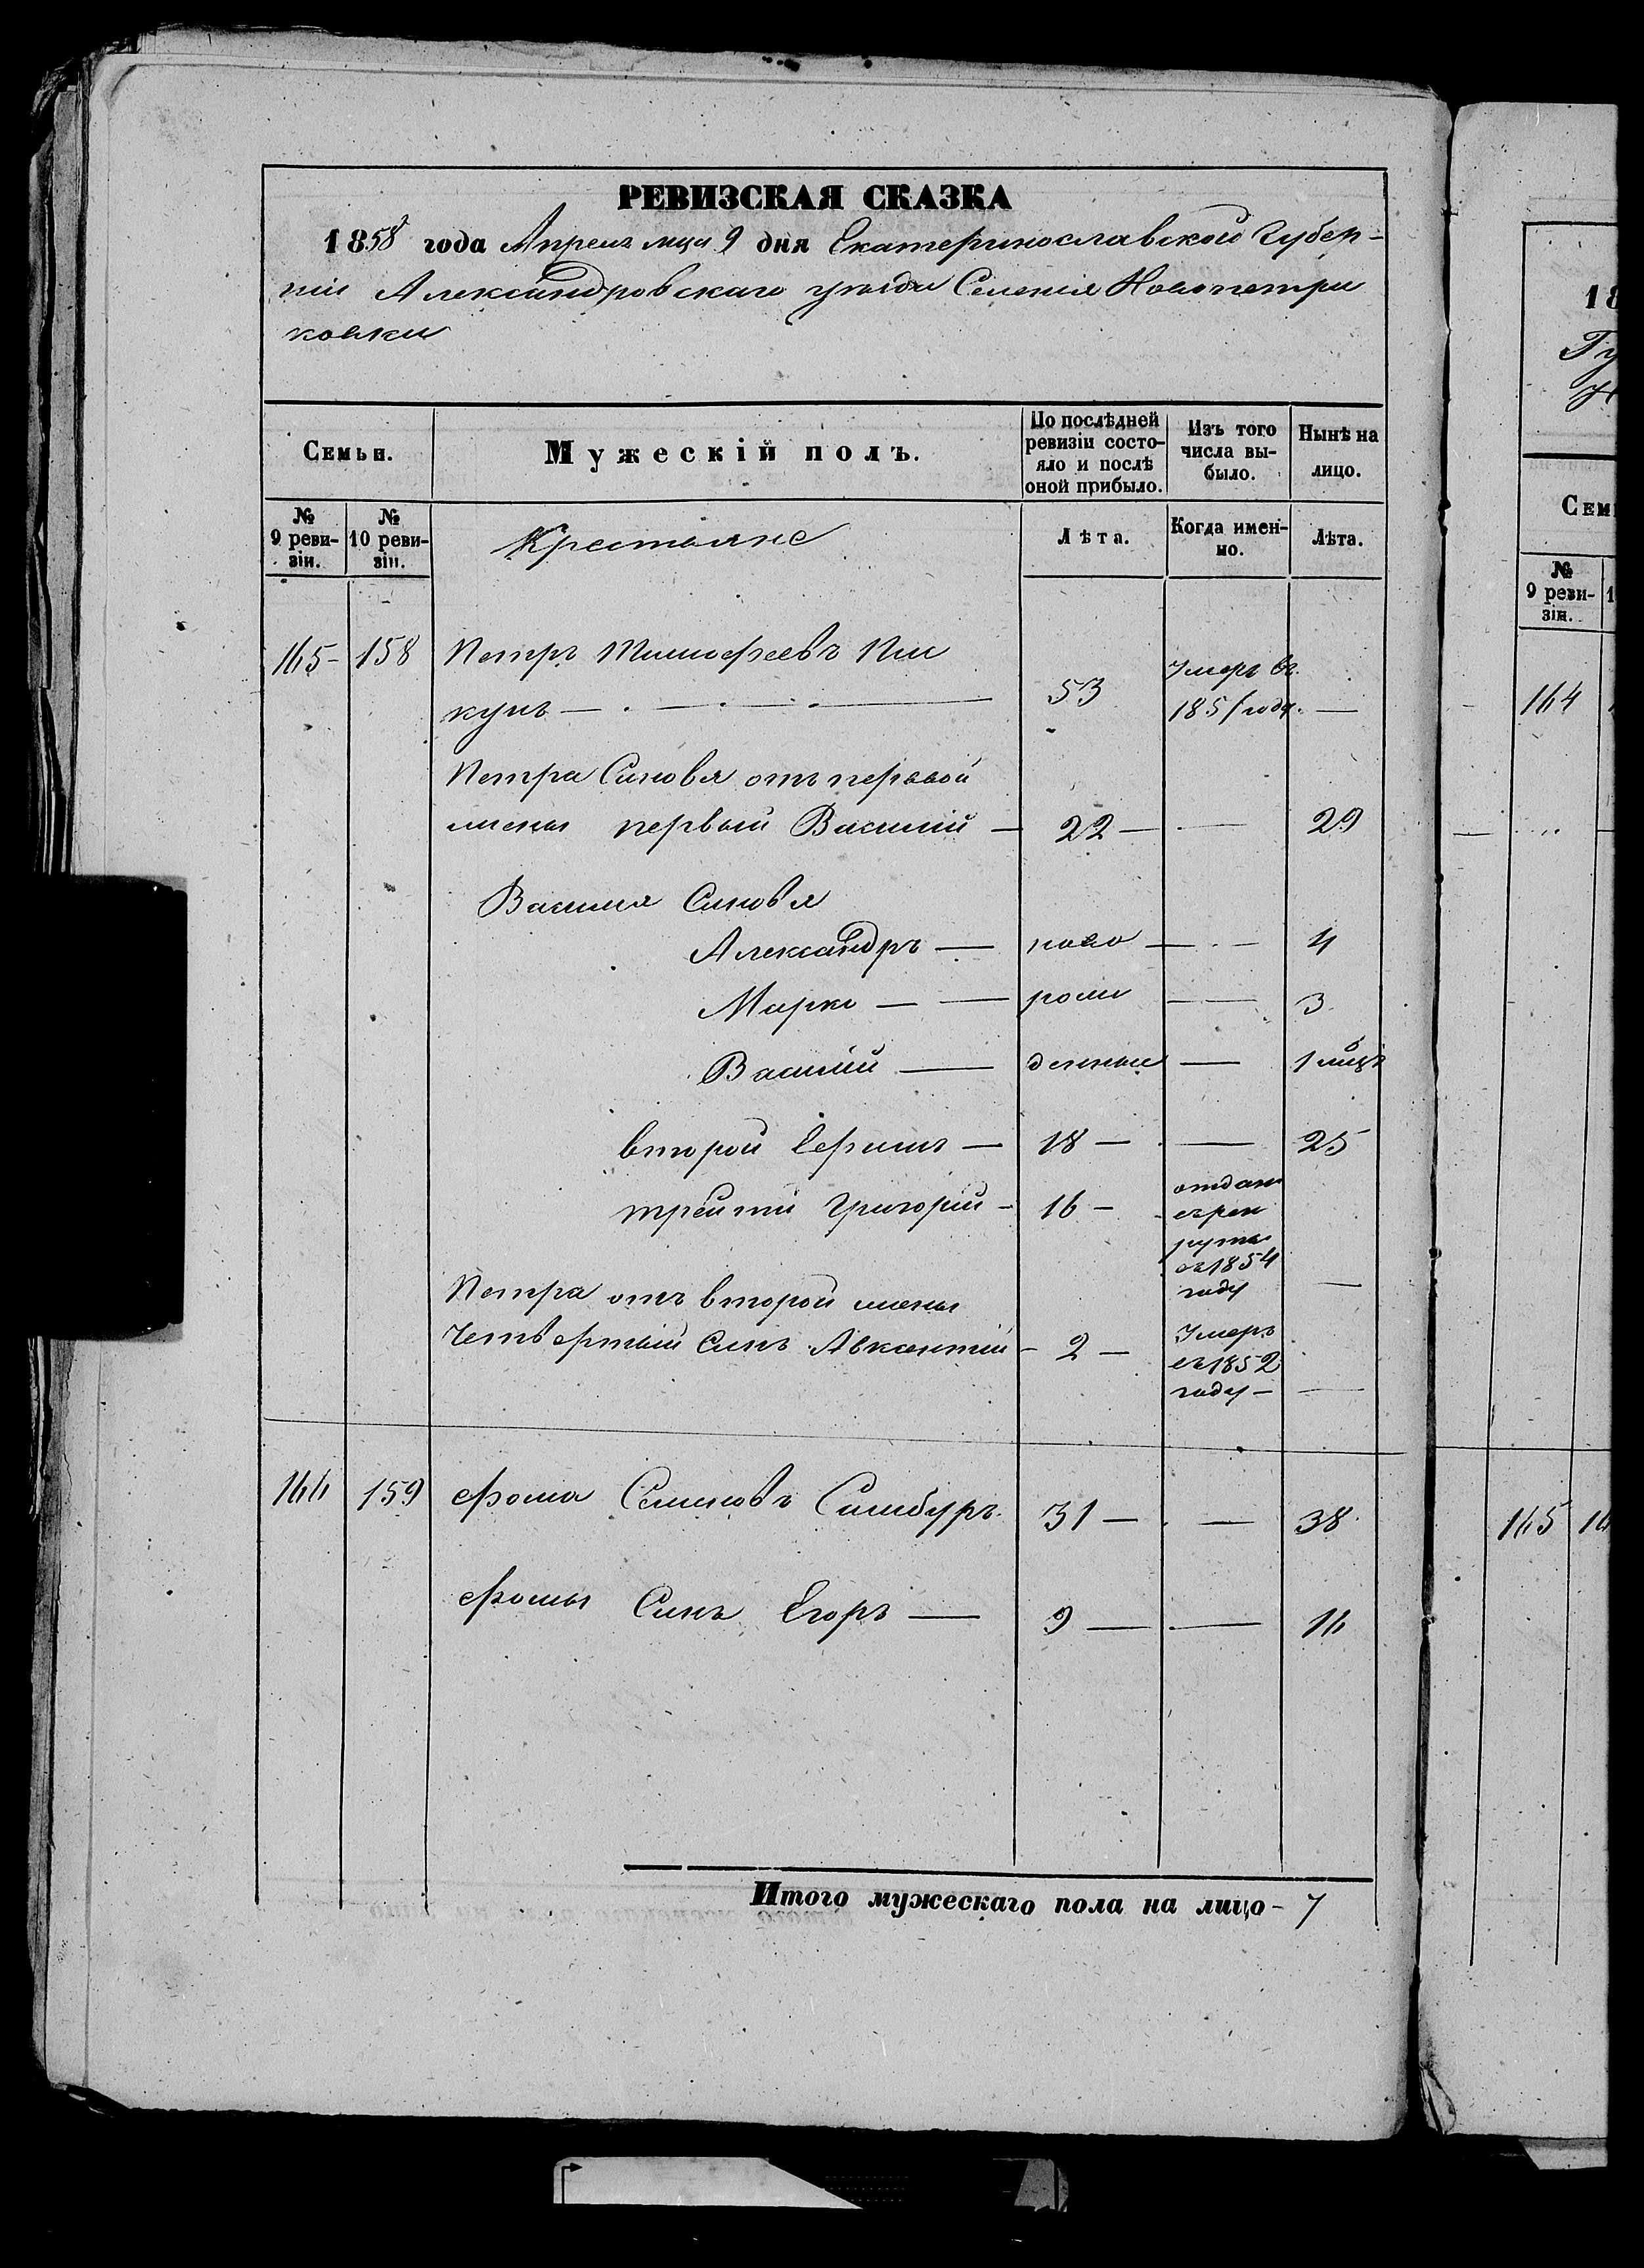 РЕВИЗСКАЯ СКАЗКА
1858 года Апреля мца 9 дня Екатеринославской Губер-
нiи Александровскаго уѣзда Селенiя Новопетри
ковки
Семьи.
Мужескiй полъ.
По послѣдней ревизiи состо-яло и послѣ оной прибыло.
Изъ того числа вы-было.
Нынѣ на лицо.
№ 9 реви-зiи.
№ 10 реви-зiи.
Крестьяне
Лѣта.
Когда имен-но.
Лѣта.
165 - 158 Петръ Тимофеевъ Пи
кунъ — 53 Умеръ въ 1851 году. —
Петра Синовя отъ первой
жены первый Василiй — 22 — — 29
Василия Синовя
Александръ — ново — 4
Марко — рож — 3
Василiй —денные — 1 мцъ
второй Ефимъ — 18 — — 25
трейтiй Григорiй - 16 - отданъ
въ рек
руты
въ 1854
году —
Петра отъ второй жены
Четвертый Синъ Авксентiй - 2 — Умеръ
въ 1852
году — —
166 159 Фома Семеновъ Самбуръ 31 — — 38
Фомы Синъ Егоръ — 9 — — 16
Итого мужескаго пола на лицо - 7
18
Гу
Сем
№ 9 реви-зiи.
164
165 16